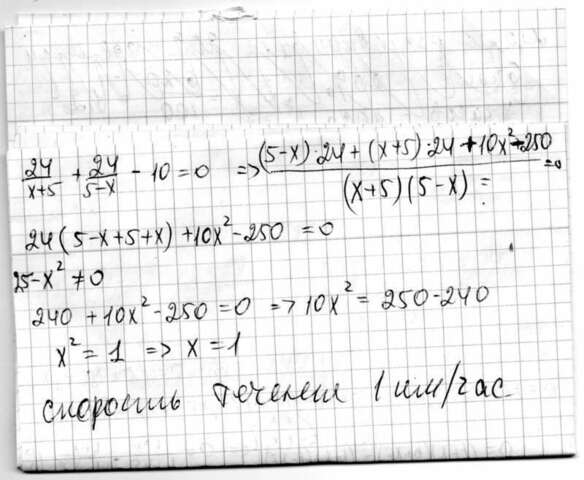 24/(x+5) + 24/(5-x) - 10 = 0 => ((5-x)·24 + (x+5)·24 + 10x² - 250)/((x+5)(5-x)) = 0
24(5-x+5+x) + 10x² - 250 = 0
25-x² ≠ 0
240 + 10x² - 250 = 0 => 10x² = 250-240
x² = 1 => x = 1
скорость течения 1 км/час